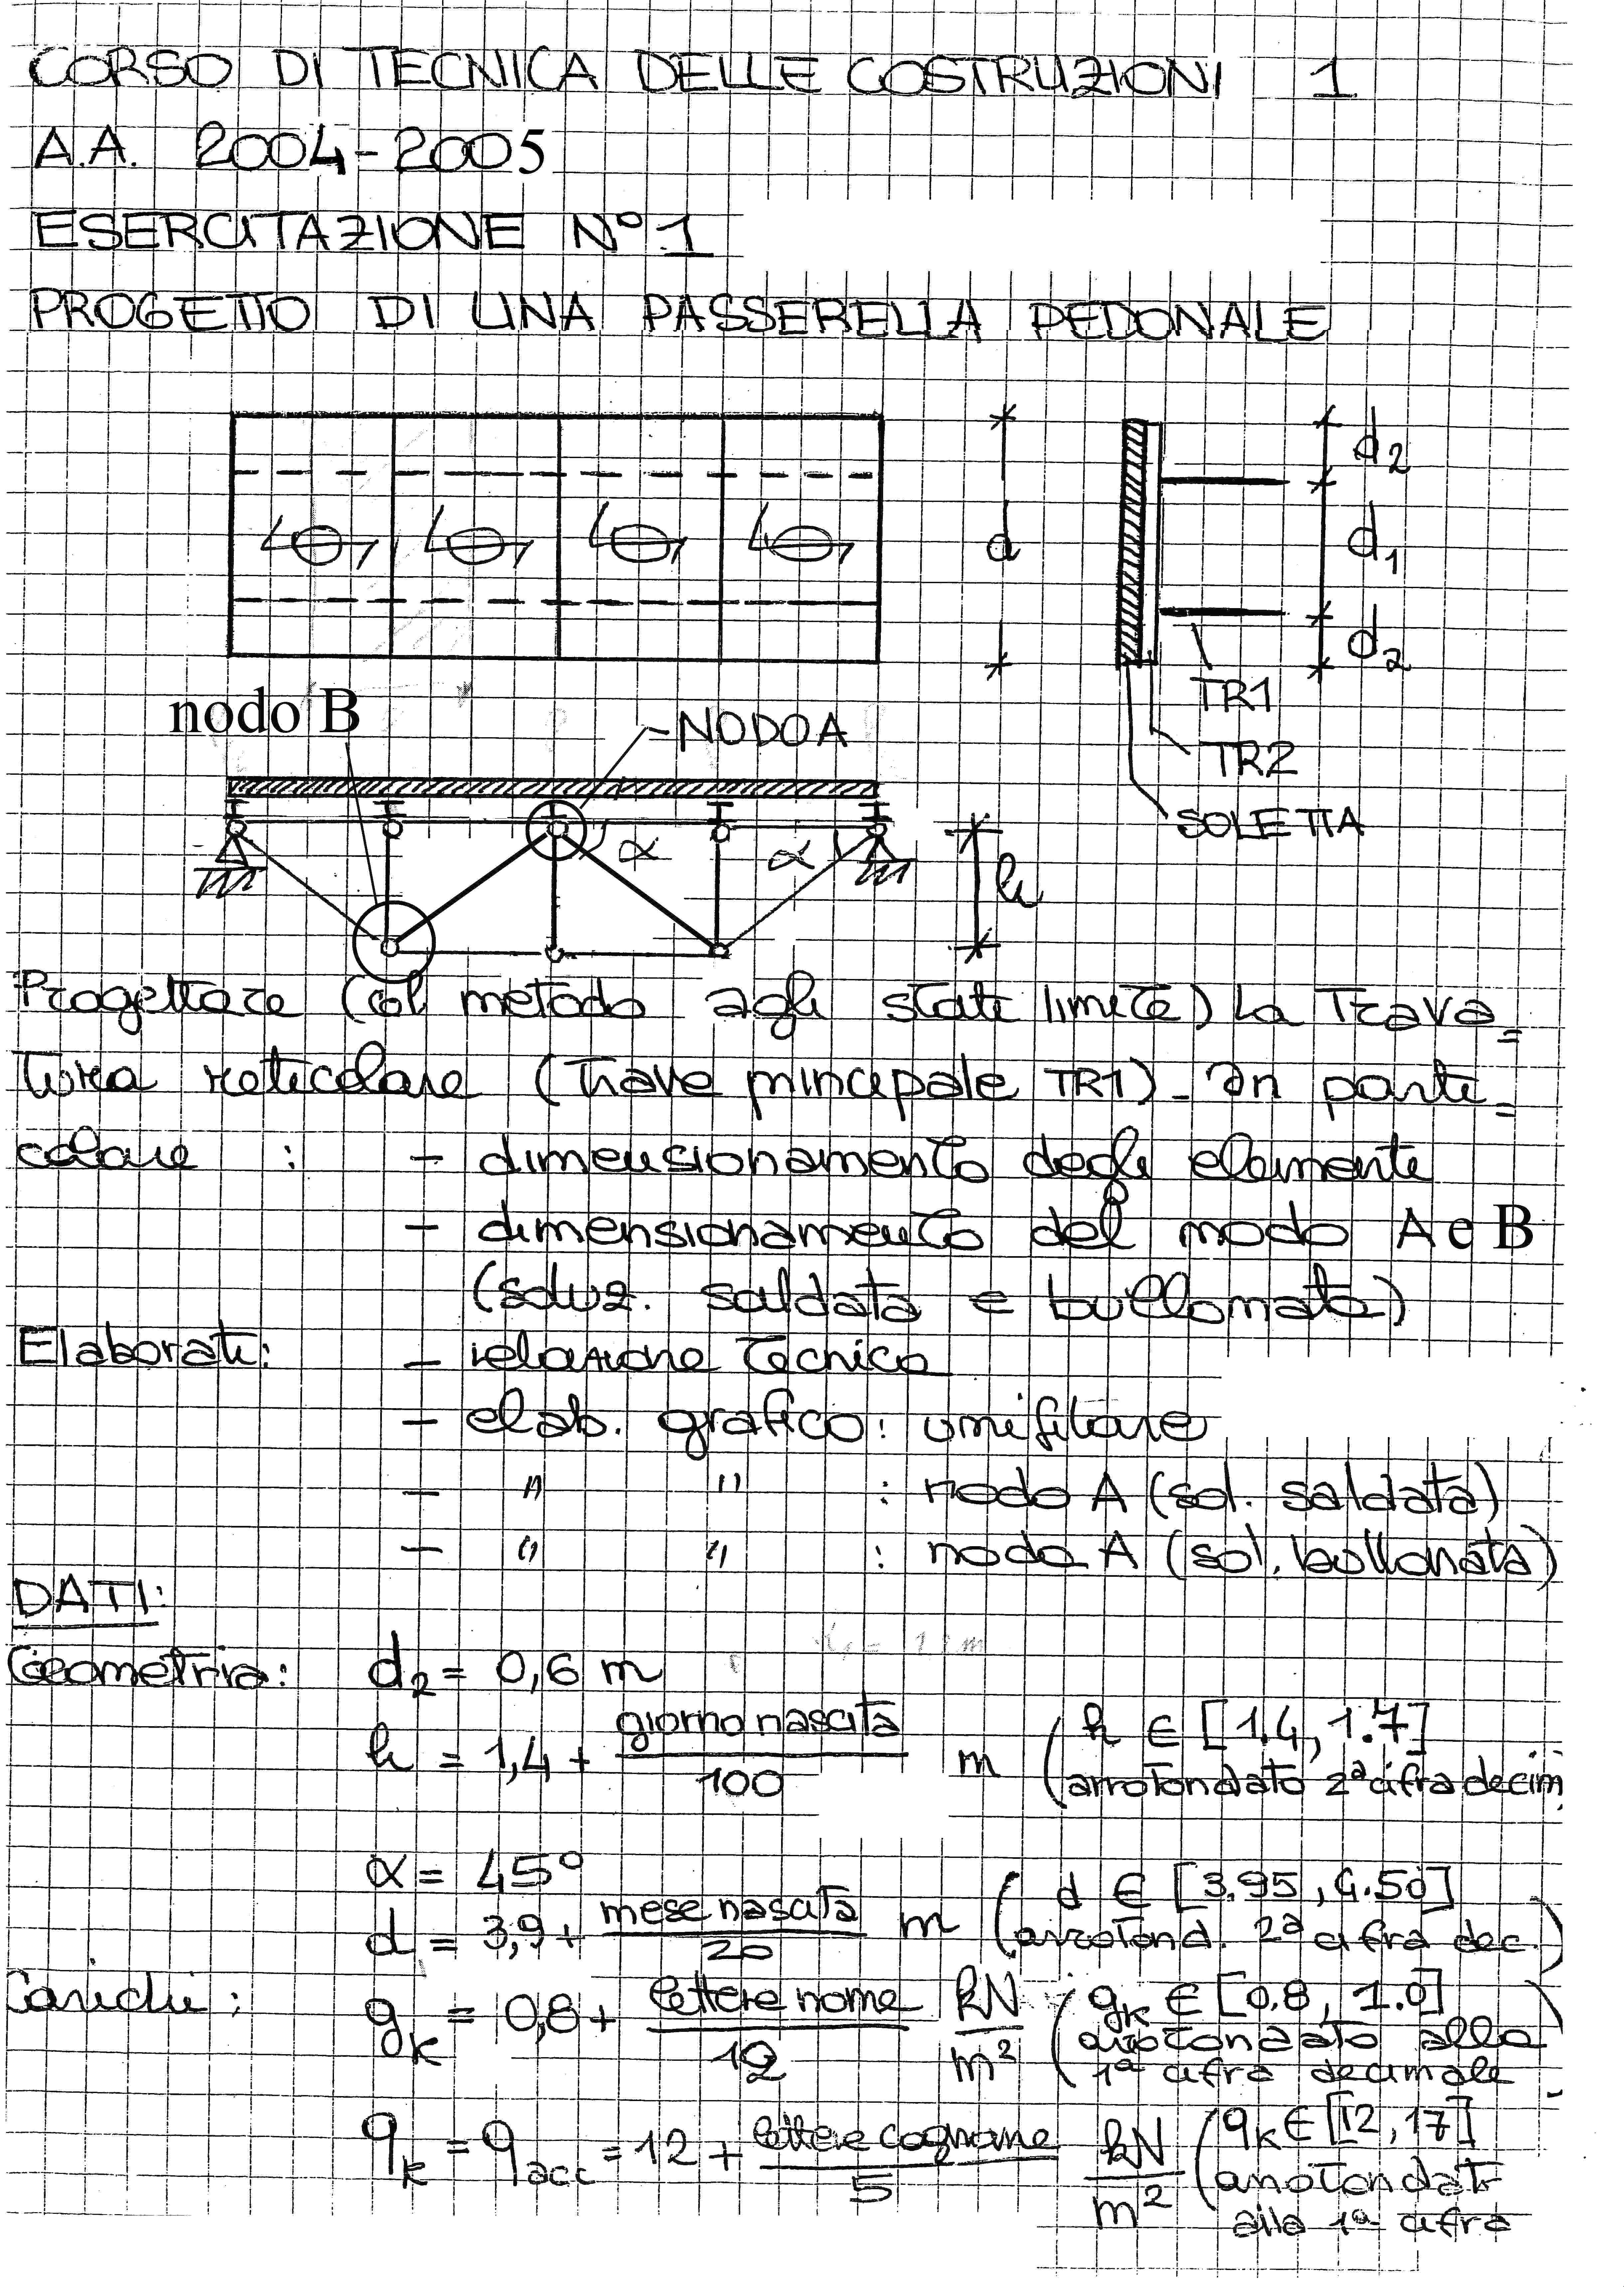 CORSO DI TECNICA DELLE COSTRUZIONI 1
A.A. 2004-2005
ESERCITAZIONE N° 1
PROGETTO DI UNA PASSERELLA PEDONALE
d
d2
d1
d2
TR1
TR2
SOLETTA
nodo B
NODO A
α
α
h
Progettare (col metodo agli stati limite) la trava=
tura reticolare (trave principale TR1). In parti=
colare : - dimensionamento degli elementi
- dimensionamento del nodo A e B
(soluz. saldata e bullonata)
Elaborati: - relazione tecnica
- elab. grafico: unifilare
- " " : nodo A (sol. saldata)
- " " : nodo A (sol. bullonata)
DATI:
Geometria: d2 = 0,6 m
h = 1,4 + giorno nascita / 100 m (h ∈ [1.4, 1.7]
arrotondato 2ª cifra decim
α = 45°
d = 3,9 + mese nascita / 20 m (d ∈ [3.95, 4.50]
arrotond. 2ª cifra dec.)
Carichi: gk = 0,8 + lettere nome / kN/m² (gk ∈ [0.8, 1.0]
arrotondato alla
1ª cifra decimale)
qk = qacc = 12 + lettere cognome / 5 kN/m² (qk ∈ [12, 17]
arrotondat
alla 1ª cifra